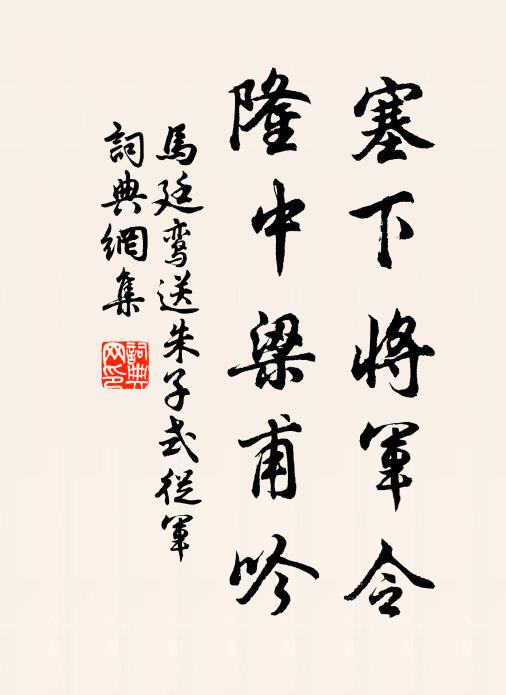 塞下將軍令
隆中梁甫吟
馬廷鸞送朱子式從軍
詞典網集
詞典網印